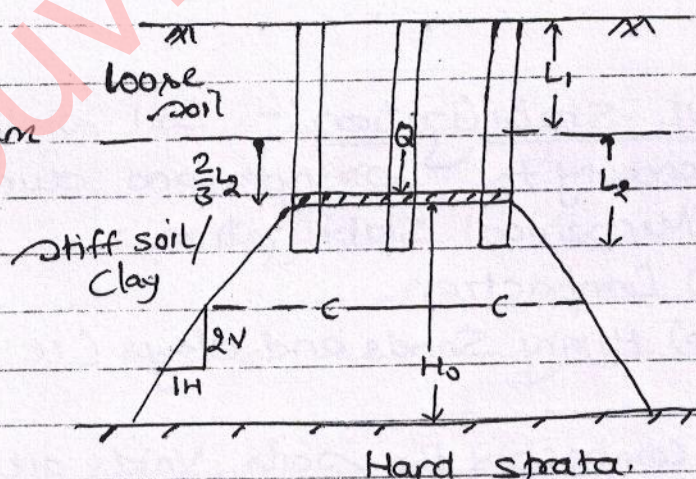 loose
soil
L1
Q
2/3 L2
L2
stiff soil/
Clay
C C
2V
1H
H0
Hard strata.